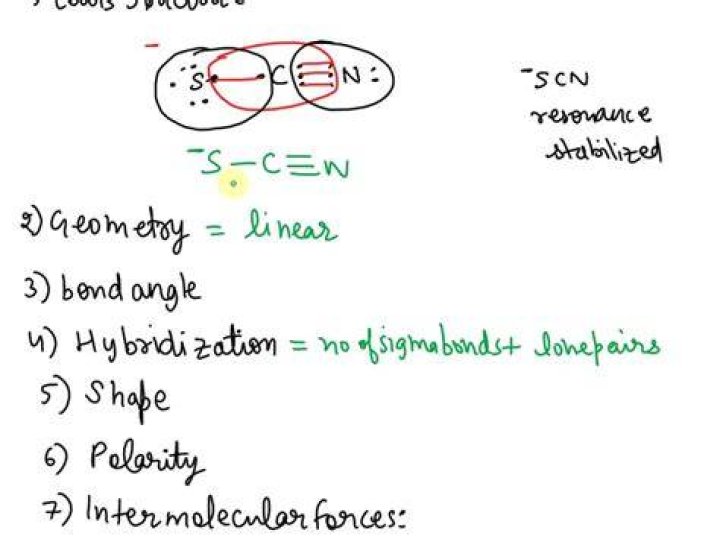 Lewis Structure:
- S C N :
⁻SCN
resonance
stabilized
⁻S-C≡N
2) Geometry = linear
3) bond angle
4) Hybridization = no of sigma bonds + lone pairs
5) Shape
6) Polarity
7) Intermolecular forces: